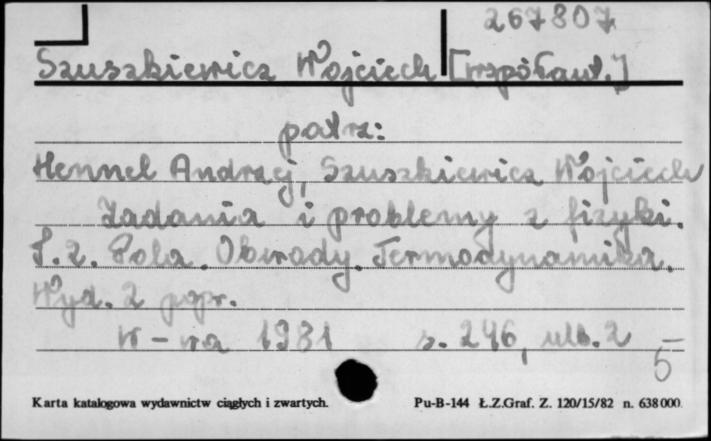 267807
Szuszkiewicz Wojciech [współaut.]
patrz:
Hennel Andrzej, Szuszkiewicz Wojciech
Zadania i problemy z fizyki.
T. 2. Pola. Obwody. Termodynamika.
Wyd. 2 popr.
W-wa 1981 s. 246, nlb. 2
5
Karta katalogowa wydawnictw ciągłych i zwartych. Pu-B-144 Ł.Z.Graf. Z. 120/15/82 n. 638000